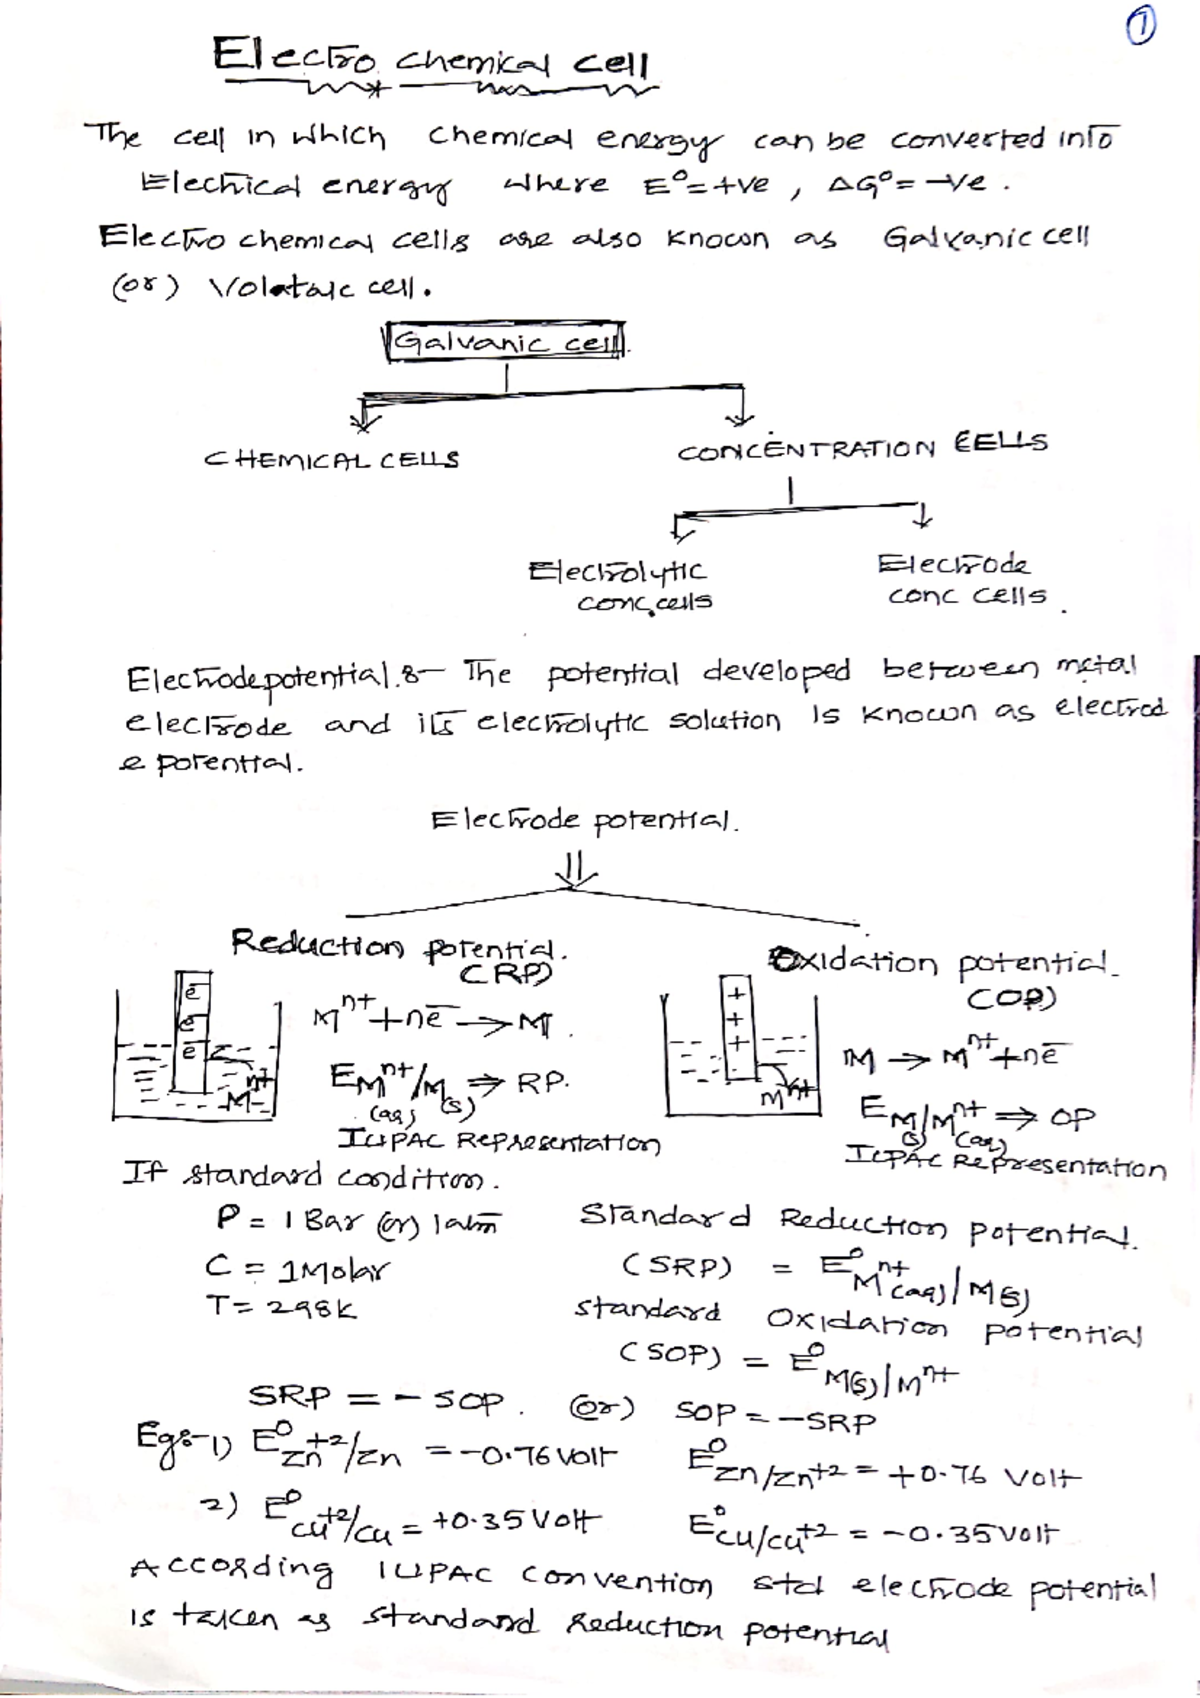 1
Electro chemical cell
The cell in which chemical energy can be converted into
Electrical energy where E⁰=+ve, ΔG⁰=-ve.
Electro chemical cells are also known as Galvanic cell
(or) Volataic cell.
Galvanic cell.
CHEMICAL CELLS
CONCENTRATION CELLS
Electrolytic
conc.cells
Electrode
conc cells.
Electrodepotential:- The potential developed between metal
electrode and its electrolytic solution Is known as electrod
e potential.
Electrode potential.
Reduction potential.
(RP)
Oxidation potential.
(OP)
e⁻
e⁻
e⁻
Mⁿ⁺
Mⁿ⁺+ne⁻→M.
E Mⁿ⁺(aq)/M(s) ⇒ RP.
IUPAC Representation
+
+
+
Mⁿ⁺
M → Mⁿ⁺+ne⁻
E M(s)/Mⁿ⁺(aq) ⇒ OP
IUPAC Representation
If standard condition.
P = 1 Bar (or) 1atm
C = 1Molar
T= 298K
Standard Reduction potential.
(SRP) = E⁰ Mⁿ⁺(aq)/M(s)
standard Oxidation potential
(SOP) = E⁰ M(s)/Mⁿ⁺
SRP = - SOP. (or) SOP = -SRP
Eg:-1) E⁰ Zn⁺²/Zn = -0.76 Volt E⁰ Zn/Zn⁺² = +0.76 Volt
2) E⁰ Cu⁺²/Cu = +0.35 Volt E⁰ Cu/Cu⁺² = -0.35 Volt
According IUPAC convention std electrode potential
is taken as standard Reduction potential